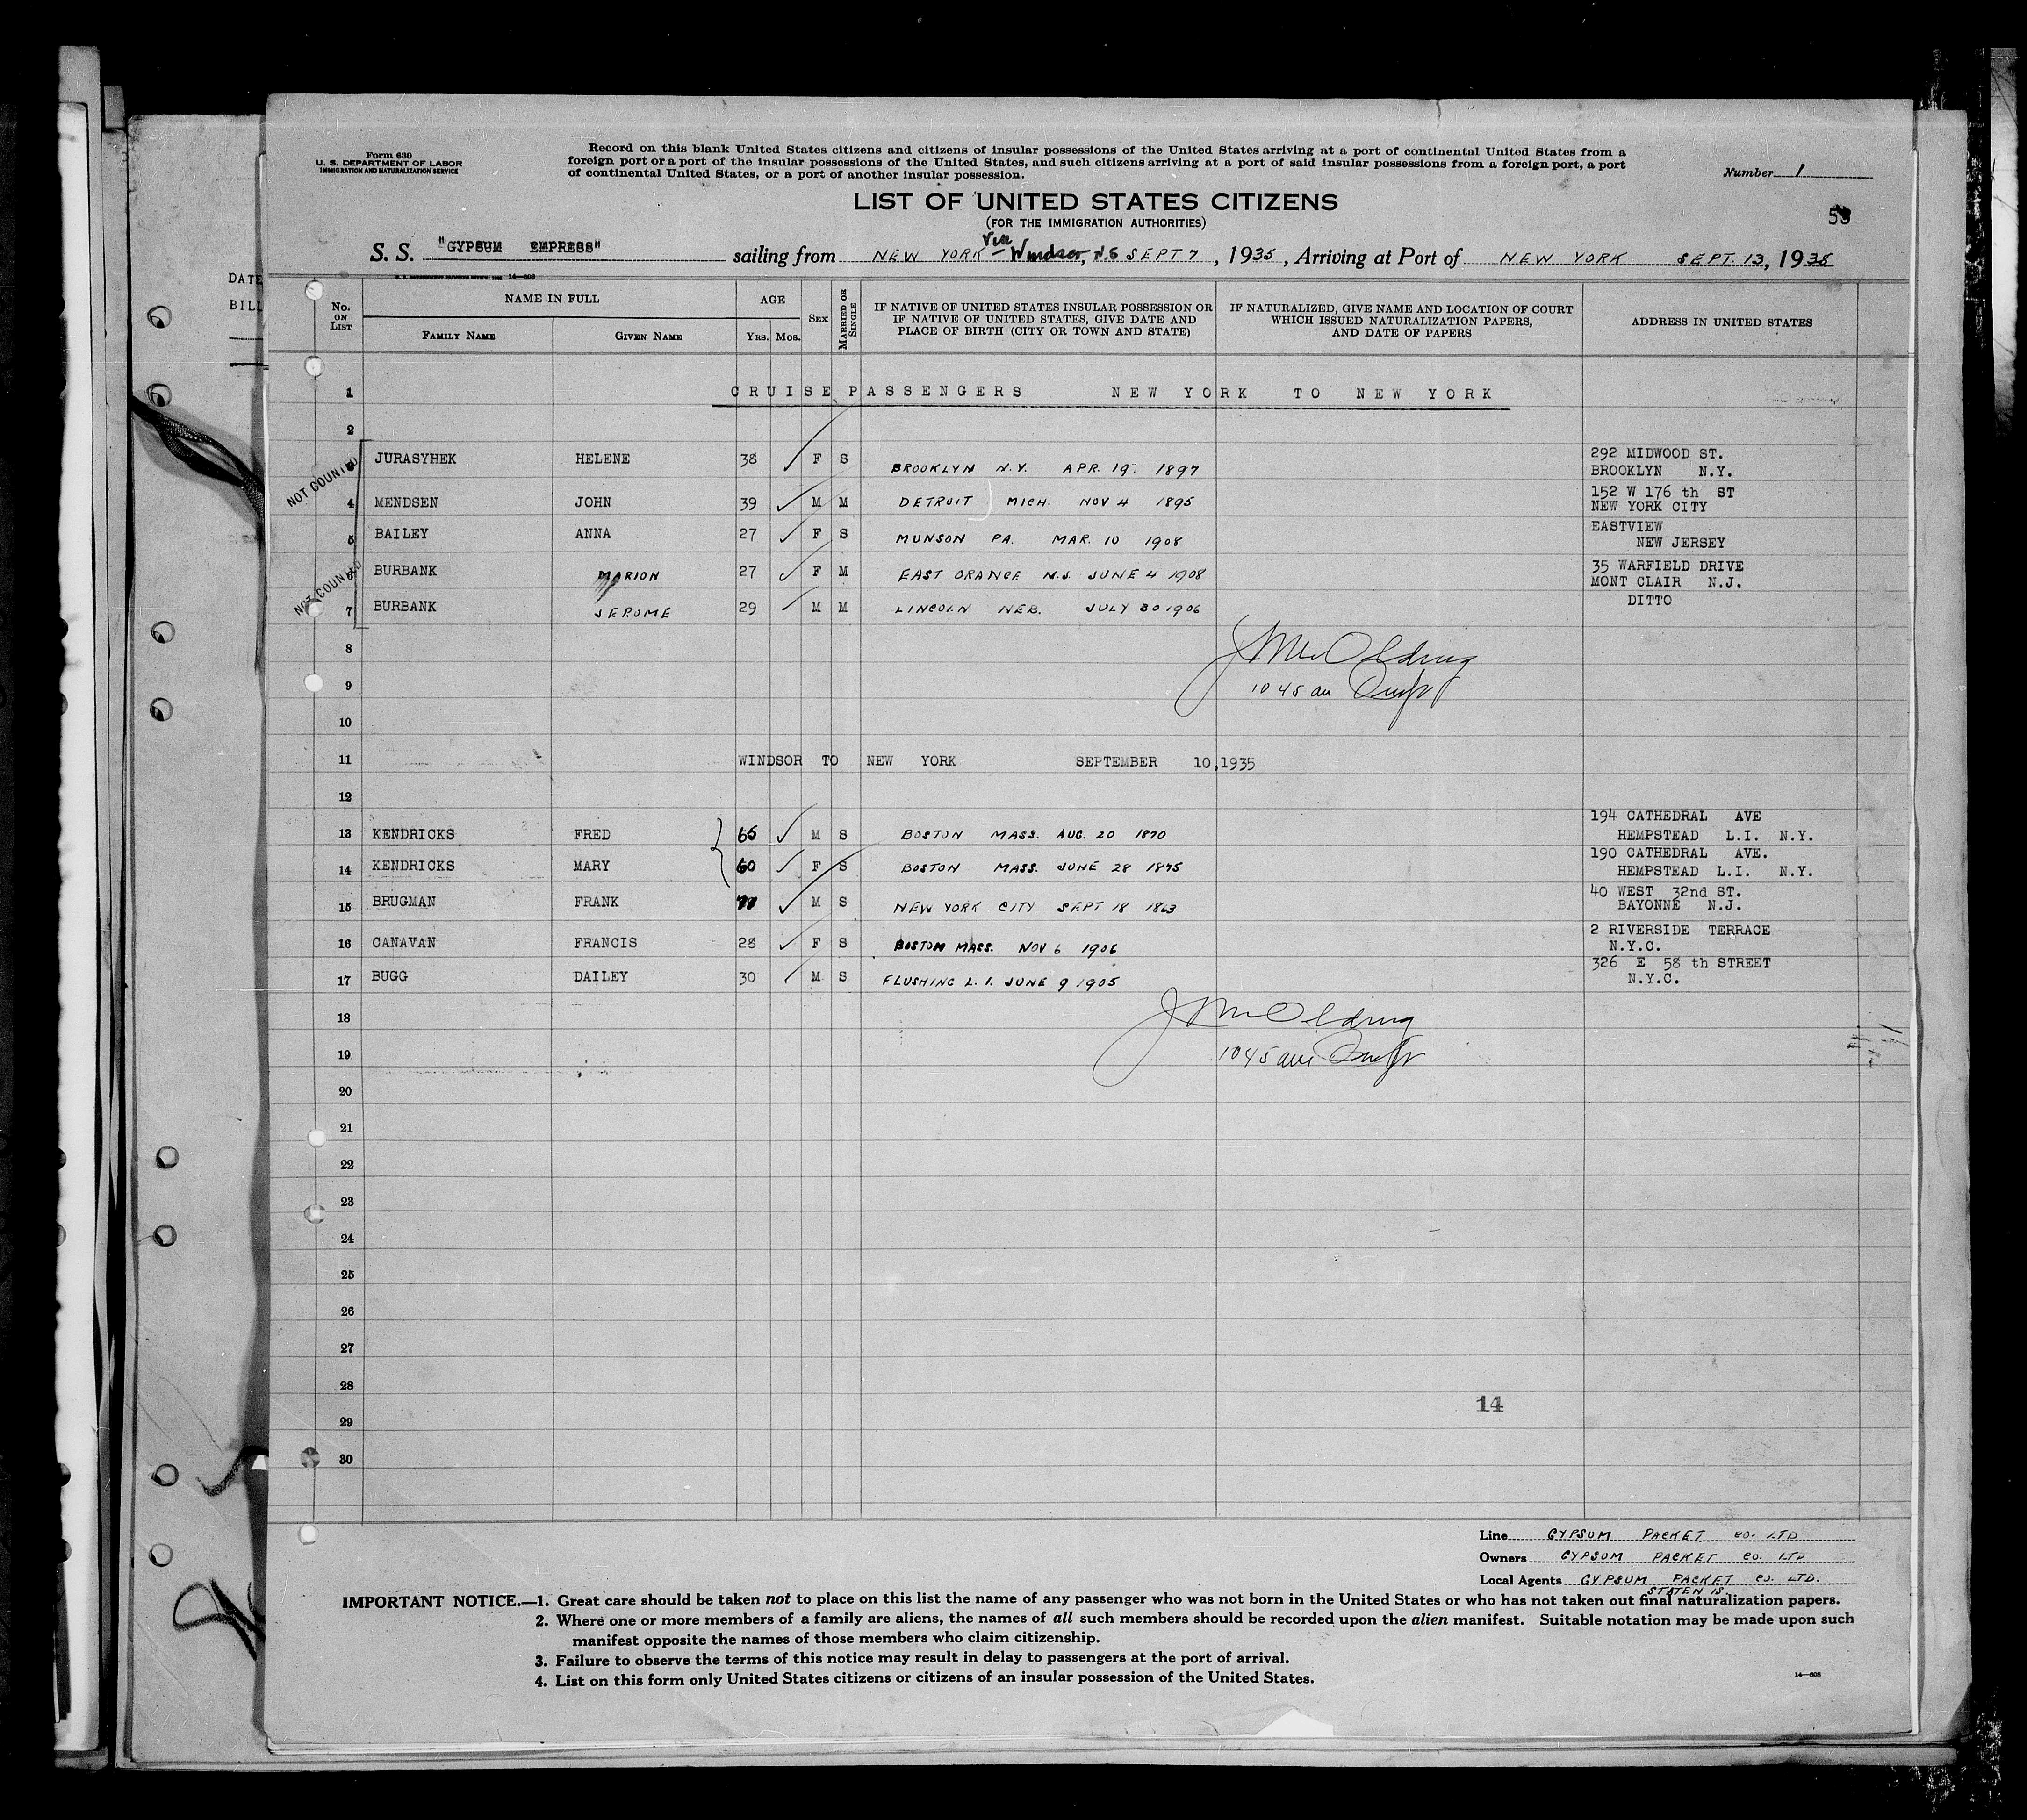 Form 630
U. S. DEPARTMENT OF LABOR
IMMIGRATION AND NATURALIZATION SERVICE
Record on this blank United States citizens and citizens of insular possessions of the United States arriving at a port of continental United States from a
foreign port or a port of the insular possessions of the United States, and such citizens arriving at a port of said insular possessions from a foreign port, a port
of continental United States, or a port of another insular possession.
Number 1
LIST OF UNITED STATES CITIZENS
(FOR THE IMMIGRATION AUTHORITIES)
S. S. "GYPSUM EMPRESS" sailing from NEW YORK via Windsor, N.S SEPT 7, 1935, Arriving at Port of NEW YORK SEPT. 13, 1935
DATE
BILL
No. ON LIST
NAME IN FULL
FAMILY NAME
GIVEN NAME
AGE
YRS. MOS.
SEX
MARRIED OR SINGLE
IF NATIVE OF UNITED STATES INSULAR POSSESSION OR
IF NATIVE OF UNITED STATES, GIVE DATE AND
PLACE OF BIRTH (CITY OR TOWN AND STATE)
IF NATURALIZED, GIVE NAME AND LOCATION OF COURT
WHICH ISSUED NATURALIZATION PAPERS,
AND DATE OF PAPERS
ADDRESS IN UNITED STATES
1 CRUISE PASSENGERS NEW YORK TO NEW YORK
2
NOT COUNTED
3 JURASYHEK HELENE 38 F S BROOKLYN N.Y. APR. 19. 1897 292 MIDWOOD ST.
BROOKLYN N.Y.
4 MENDSEN JOHN 39 M M DETROIT MICH. NOV 4 1895 152 W 176 th ST
NEW YORK CITY
5 BAILEY ANNA 27 F S MUNSON PA. MAR. 10 1908 EASTVIEW
NEW JERSEY
NOT COUNTED
6 BURBANK MARION 27 F M EAST ORANGE N.J. JUNE 4 1908 35 WARFIELD DRIVE
MONT CLAIR N.J.
7 BURBANK JEROME 29 M M LINCOLN NEB. JULY 30 1906 DITTO
8
9
10 45 am
10
11 WINDSOR TO NEW YORK SEPTEMBER 10,1935
12
13 KENDRICKS FRED 65 M S BOSTON MASS. AUG. 20 1870 194 CATHEDRAL AVE
HEMPSTEAD L.I. N.Y.
14 KENDRICKS MARY 60 F S BOSTON MASS. JUNE 28 1875 190 CATHEDRAL AVE.
HEMPSTEAD L.I. N.Y.
15 BRUGMAN FRANK M S NEW YORK CITY SEPT 18 1863 40 WEST 32nd ST.
BAYONNE N.J.
16 CANAVAN FRANCIS 28 F S BOSTON MASS. NOV 6 1906 2 RIVERSIDE TERRACE
N.Y.C.
17 BUGG DAILEY 30 M S FLUSHING L.I. JUNE 9 1905 326 E 58 th STREET
N.Y.C.
18
19
1045 am
20
21
22
23
24
25
26
27
28
14
29
30
Line GYPSUM PACKET CO. LTD
Owners GYPSUM PACKET CO. LTD
Local Agents GYPSUM PACKET CO. LTD.
STATEN IS.
IMPORTANT NOTICE.—1. Great care should be taken not to place on this list the name of any passenger who was not born in the United States or who has not taken out final naturalization papers.
2. Where one or more members of a family are aliens, the names of all such members should be recorded upon the alien manifest. Suitable notation may be made upon such
manifest opposite the names of those members who claim citizenship.
3. Failure to observe the terms of this notice may result in delay to passengers at the port of arrival.
4. List on this form only United States citizens or citizens of an insular possession of the United States.
14—608